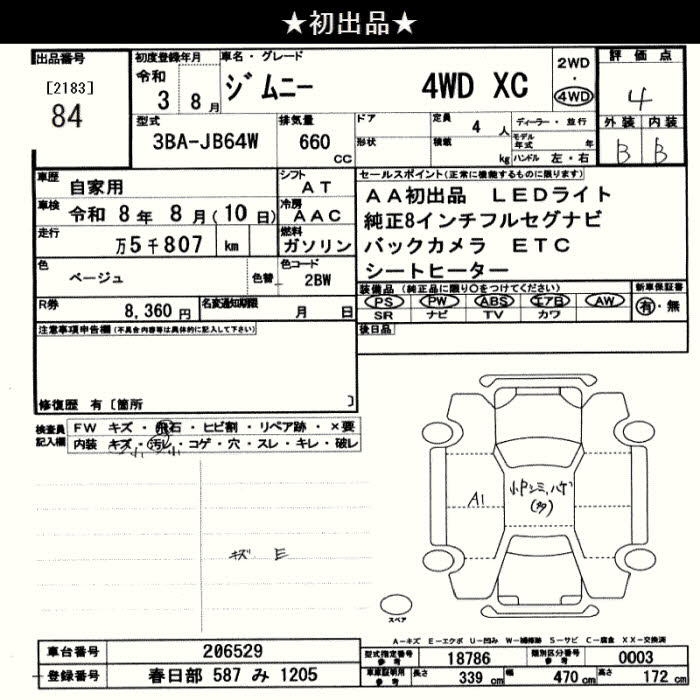 ★初出品★
出品番号
[2183]
84
初度登録年月
令和
3 8月
車名・グレード
ジムニー 4WD XC
2WD
・
4WD
評価点
4
外装 内装
B B
型式
3BA-JB64W
排気量
660
cc
ドア
形状
定員
4 人
積載
kg
ディーラー・並行
モデル
年式 年
ハンドル 左・右
車歴
自家用
シフト
AT
車検
令和 8年 8月(10日)
冷房
AAC
走行
万5千807 km
燃料
ガソリン
色
ベージュ
色替
色コード
2BW
R券
8,360円
名変通知期限
月 日
セールスポイント(正常に機能するものに限ります)
AA初出品 LEDライト
純正8インチフルセグナビ
バックカメラ ETC
シートヒーター
装備品(純正品に限り○をつけてください)
PS PW ABS エアB AW
SR ナビ TV カワ
新車保証書
有・無
後日品
注意事項申告欄(不具合内容等は具体的に記入して下さい)
修復歴 有〔箇所 〕
検査員
記入欄
FW キズ・飛石・ヒビ割・リペア跡・×要
内装 キズ・汚レ・コゲ・穴・スレ・キレ・破レ
小 小
キズ E
A1
小P シミ、ハゲ
(多)
スペア
A-キズ E-エクボ U-凹み W-補修跡 S-サビ C-腐食 XX-交換済
車台番号
206529
登録番号
春日部 587 み 1205
型式指定番号
参考
18786
類別区分番号
参考
0003
車庫証明用
参考
長さ
339 cm
幅
470 cm
高さ
172 cm